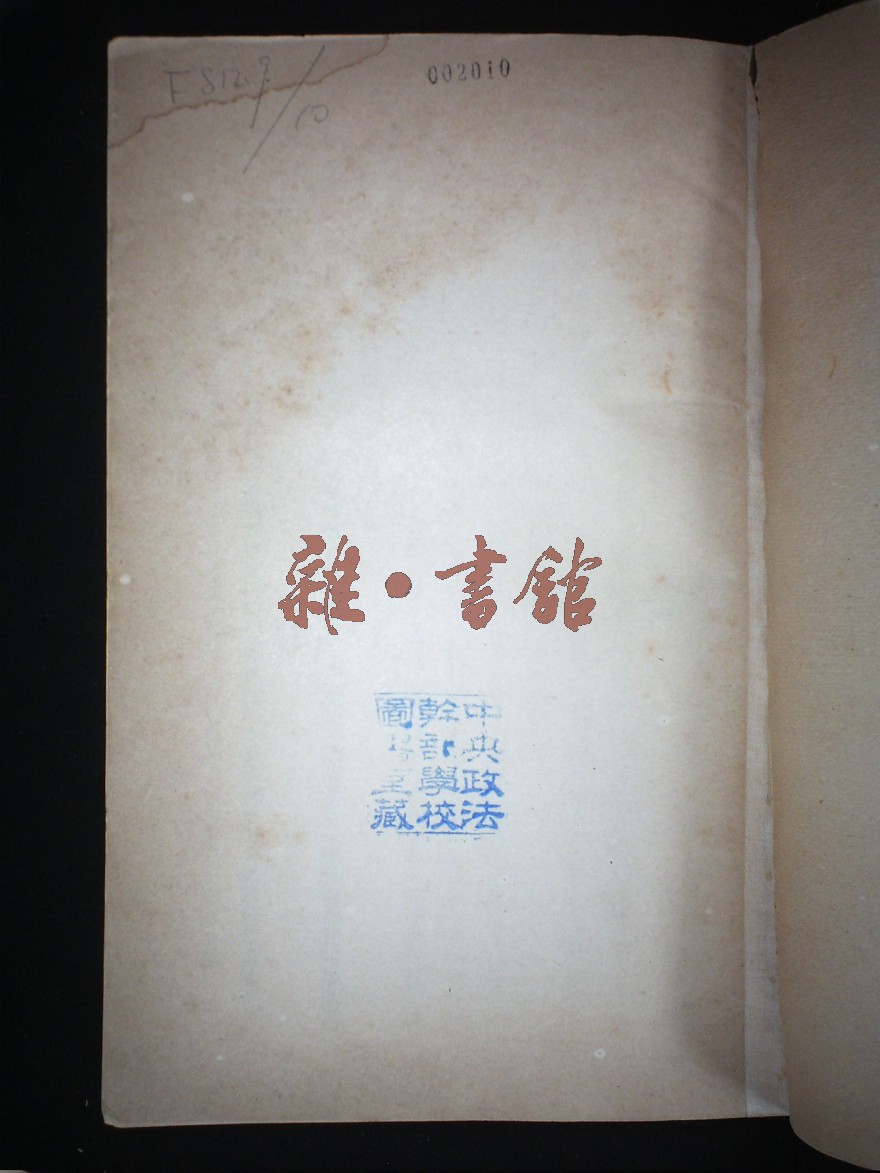 F 812.9/10
002010
雜·書館
中央政法
幹部學校
圖書室藏